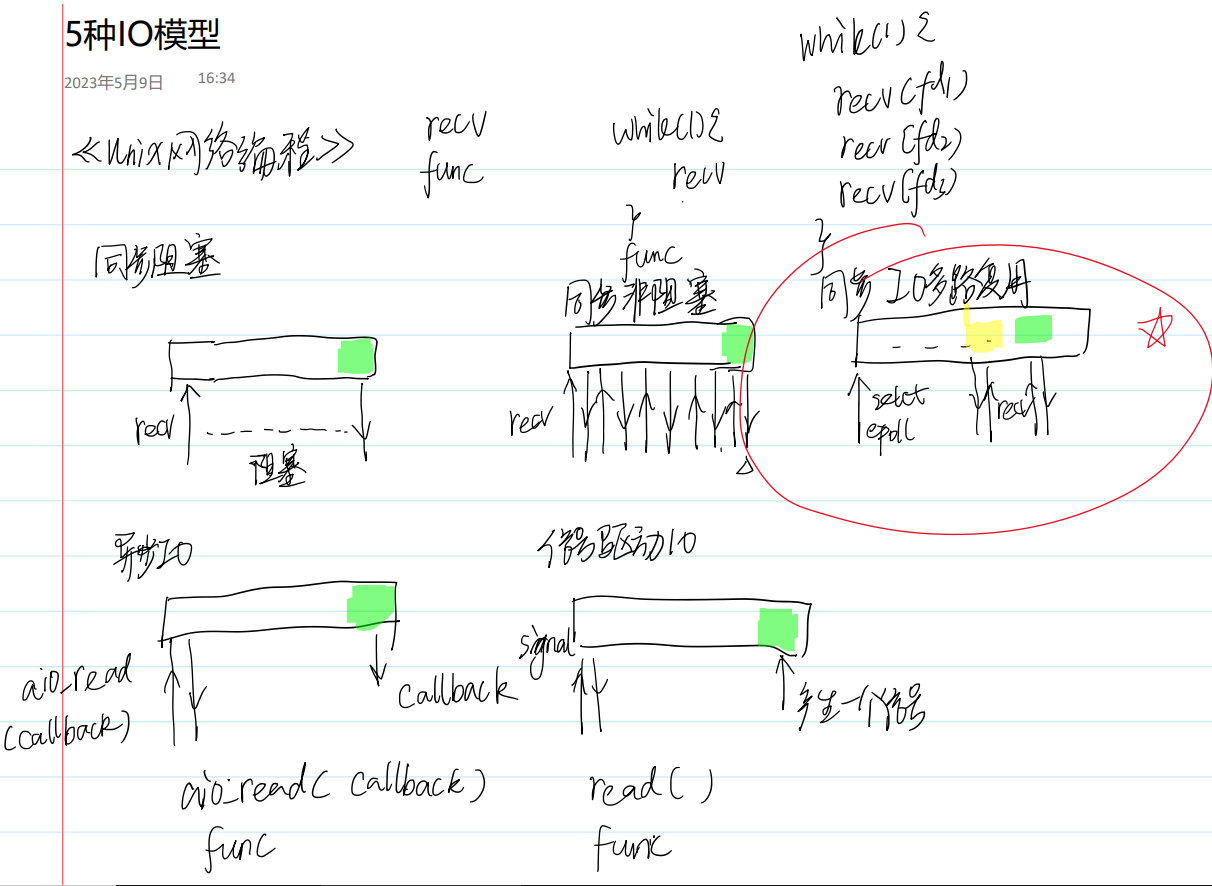 5种IO模型
2023年5月9日 16:34
<<Unix网络编程>>
recv
func
while(1){
recv
}
func
while(1){
recv(fd1)
recv(fd2)
recv(fd3)
}
同步阻塞
recv
阻塞
同步非阻塞
recv
同步IO多路复用
select
epoll
recv
异步IO
aio_read
(callback)
callback
aio_read( callback)
func
信号驱动IO
signal
产生一个信号
read( )
func